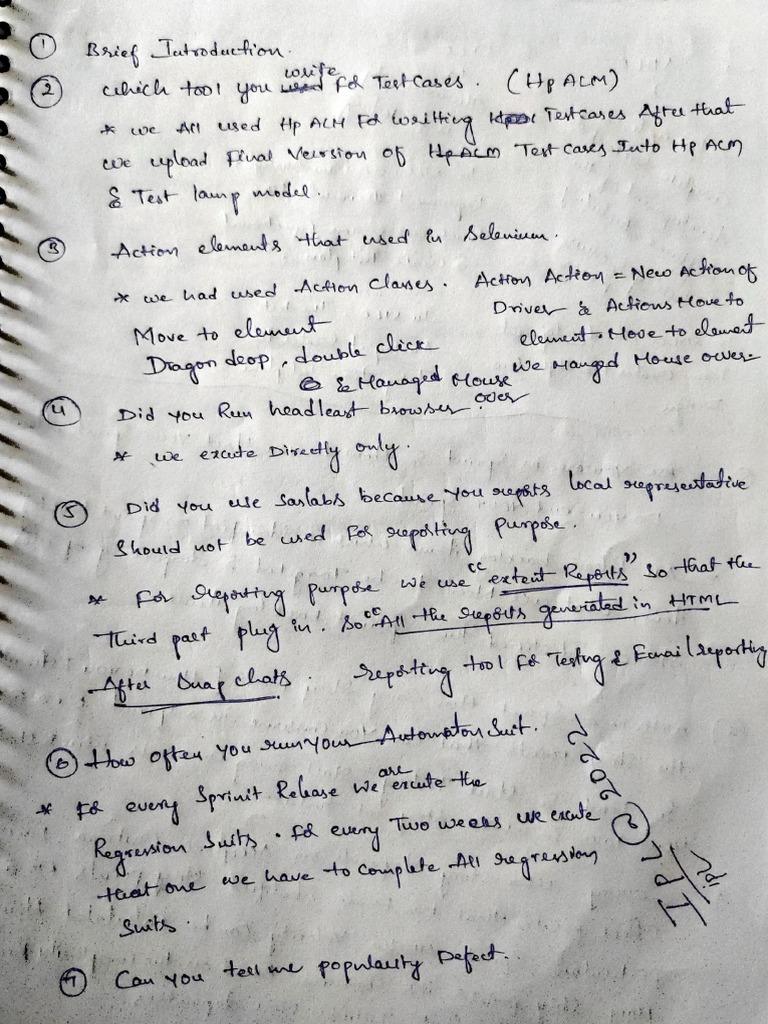 ① Brief Introduction.
② which tool you write for Test Cases. (Hp ALM)
* we All used Hp ALM For writting Testcases After that
we upload Final Version of Test Cases Into Hp ACM
& Test lamp model.
③ Action elements that used in Selenium.
* we had used Action Classes. Action Action = New Action of
Driver & Actions Move to
Move to element
element. Move to element
Dragon deop, double click
we Manged Mouse over.
& Managed Mouse over
④ Did you Run headleast browser?
* we excute Directly only.
⑤ Did you use saslabs because you reports local representative
Should not be used For reporting purpose.
* For reporting purpose we use "extent Reports" So that the
Third paet plug in. So "All the reports generated in HTML
After Snap chats. reporting tool For Testng & Email reporting
⑥ How often you run your Automaton Suit.
* For every Sprinit Release we are excute the
Regression Suits. For every Two weeks we excute
that one we have to complete All regression
Suits.
⑦ Can you tell me populaity Defect..
IPL
ipl
2022